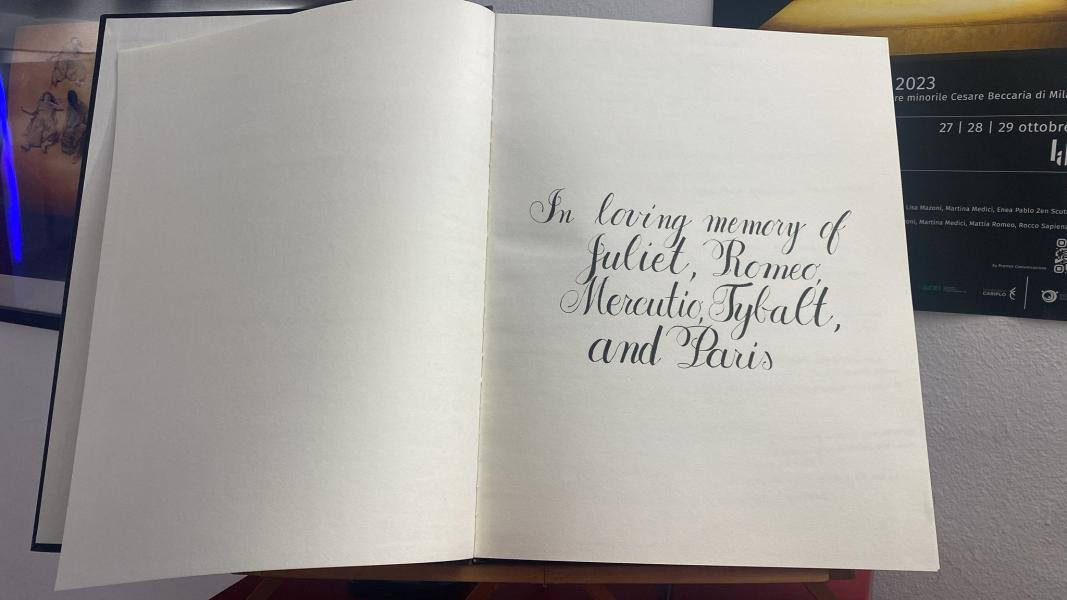 In loving memory of
Juliet, Romeo,
Mercutio, Tybalt,
and Paris
2023
re minorile Cesare Beccaria di Mila
27 | 28 | 29 ottobre
Lisa Mazoni, Martina Medici, Enea Pablo Zen Scut
oni, Martina Medici, Mattia Romeo, Rocco Sapiena
CARIPLO